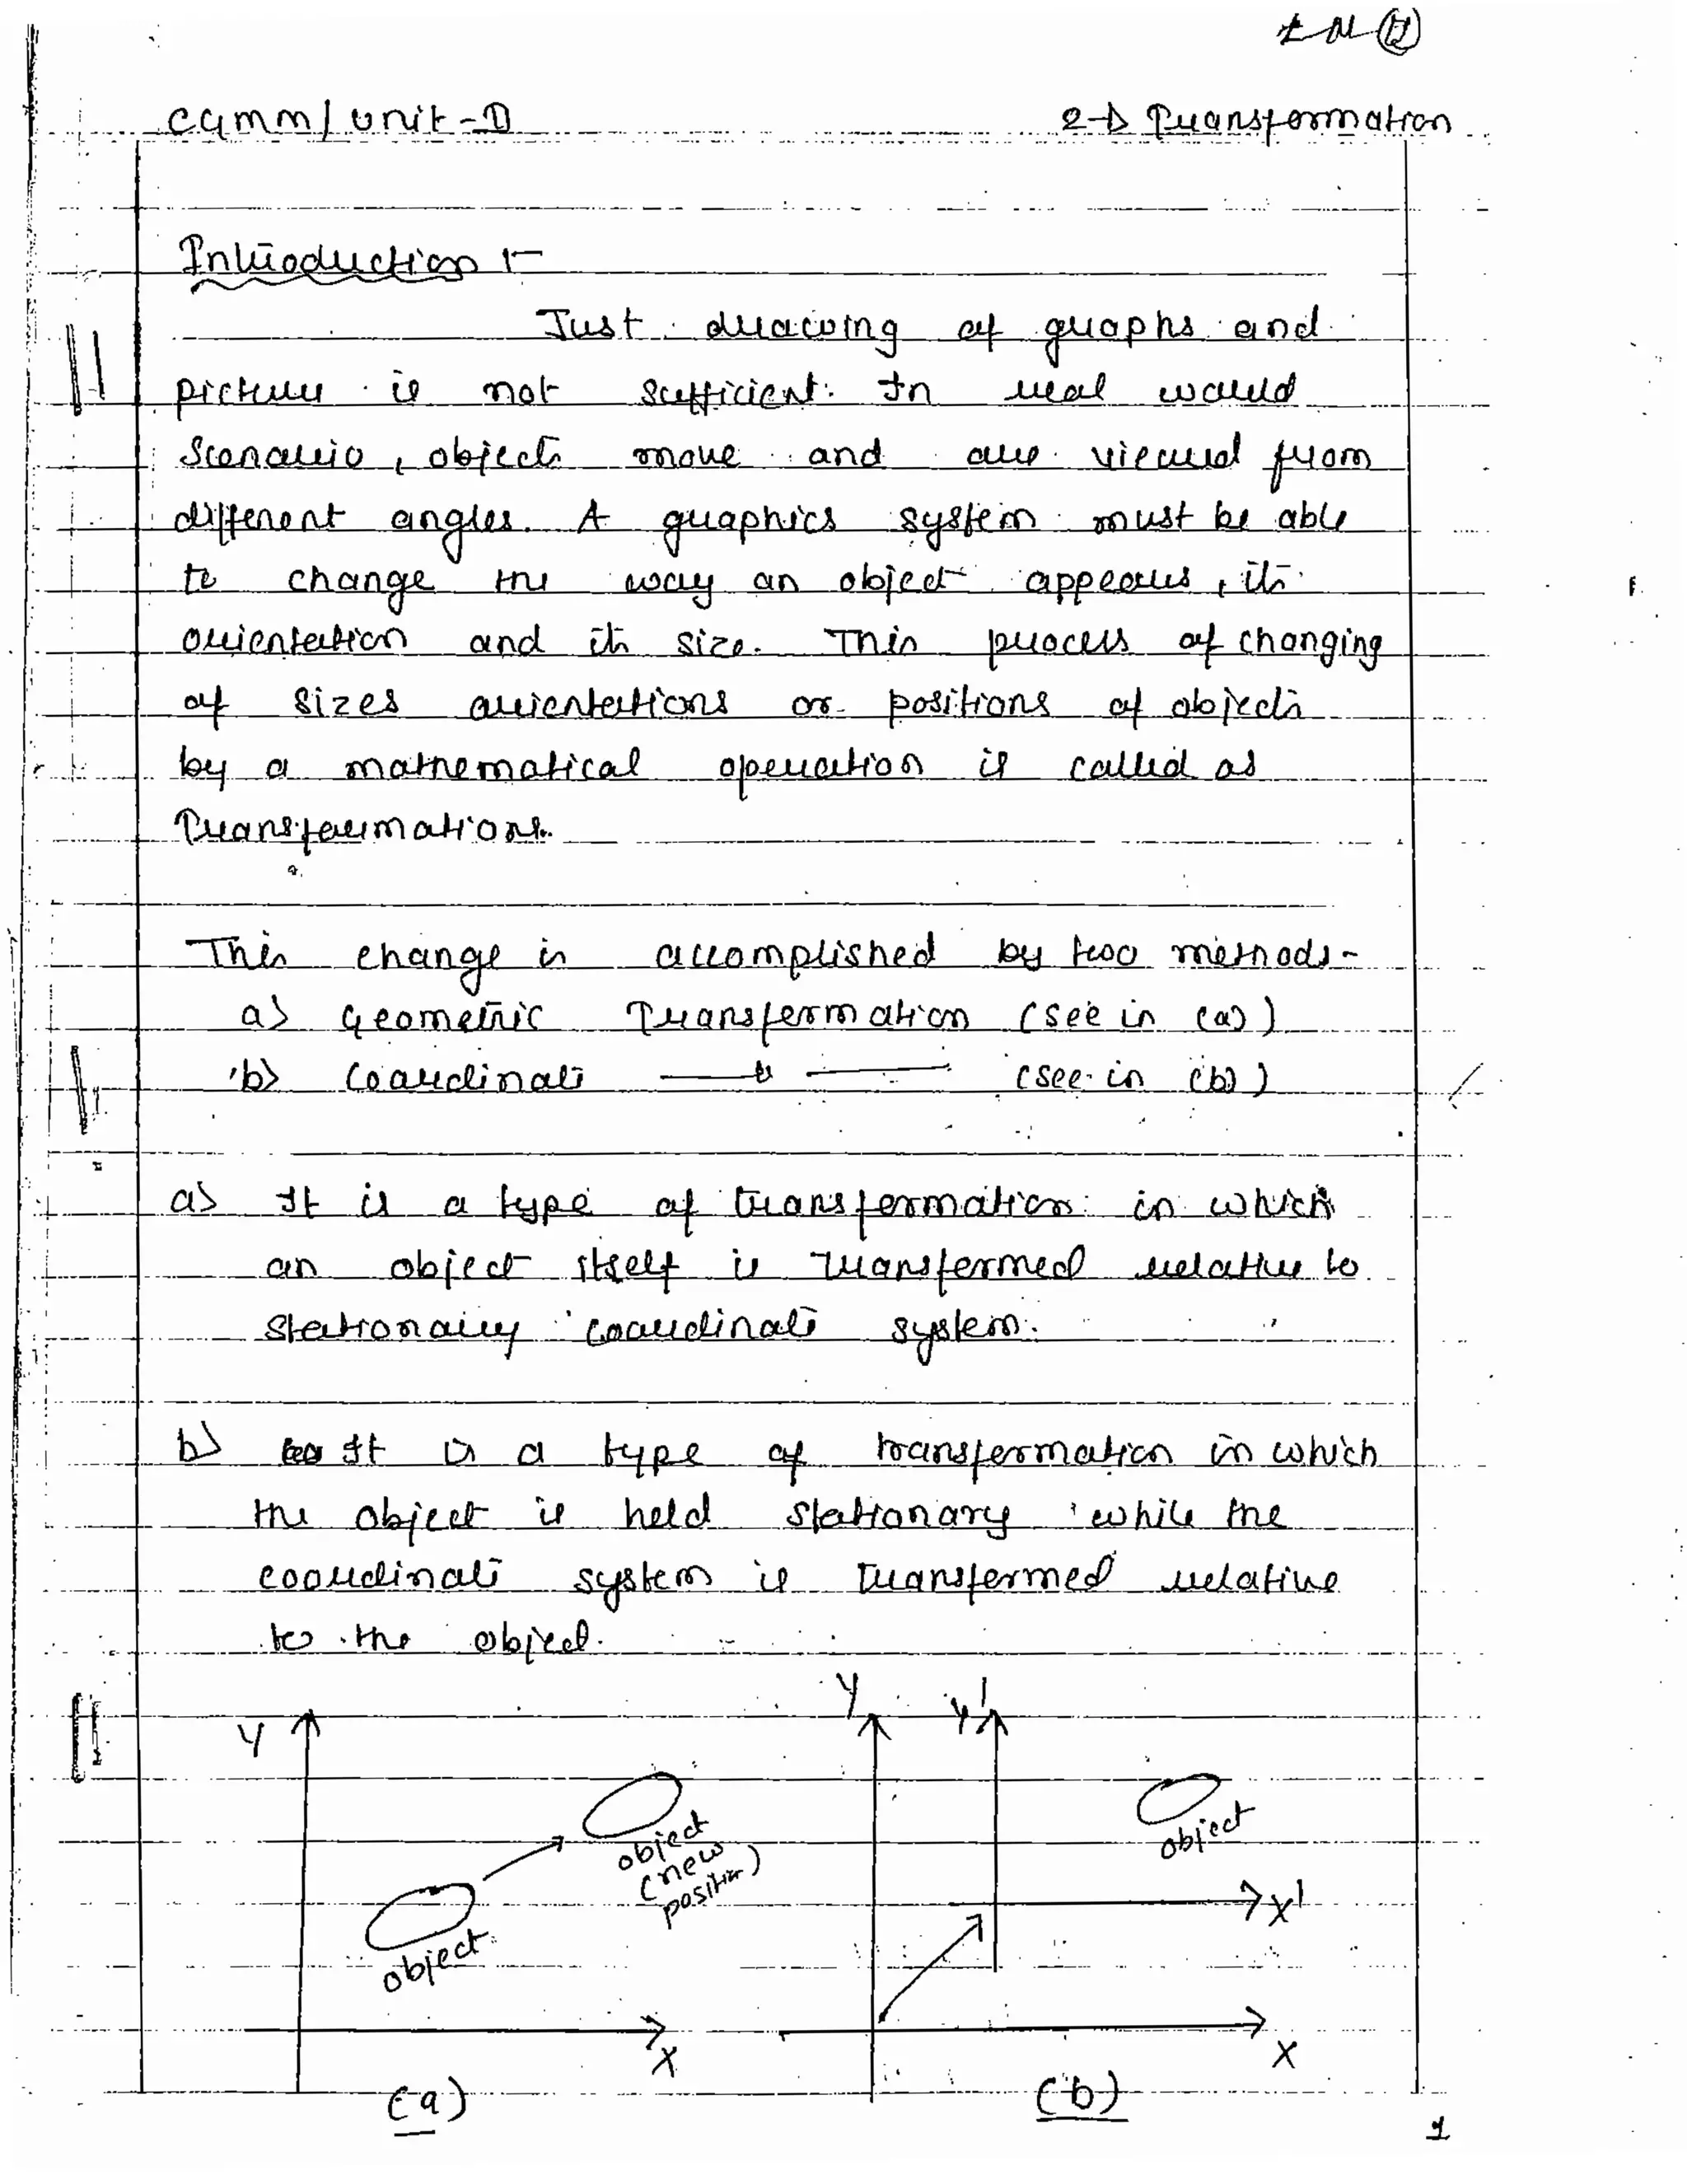 CGMM/Unit-II 2-D Transformation
Introduction :-
Just drawing of graphs and
picture is not sufficient. In real world
Scenario, objects move and are viewed from
different angles. A graphics system must be able
to change the way an object appears, its
orientation and its size. This process of changing
of sizes orientations or positions of objects
by a mathematical operation is called as
Transformations.
This change is accomplished by two methods-
a) Geometric Transformation (see in (a))
b) Coordinate —— " —— (see in (b))
a) It is a type of transformation in which
an object itself is transformed relative to
stationary coordinate system.
b) It is a type of transformation in which
the object is held stationary while the
coordinate system is transformed relative
to the object.
Y Y Y'
object
(new
position)
object
object
X'
X X
(a) (b)
1